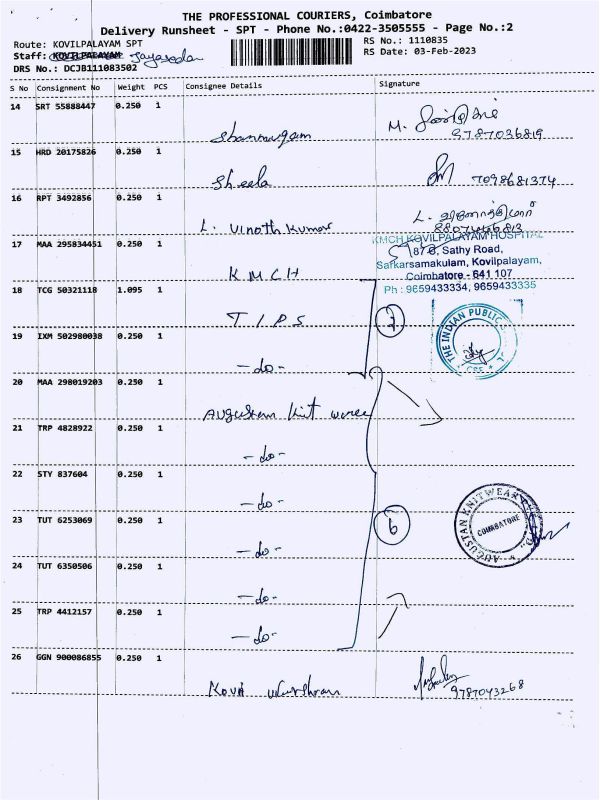 THE PROFESSIONAL COURIERS, Coimbatore
Delivery Runsheet - SPT - Phone No.:0422-3505555 - Page No.:2
Route: KOVILPALAYAM SPT
RS No.: 1110835
Staff: KOVILPALAYAM
RS Date: 03-Feb-2023
DRS No.: DCJB111083502
S No Consignment No Weight PCS Consignee Details Signature
14 SRT 55888447 0.250 1 Shanmugam M.
9787036819
15 HRD 20175826 0.250 1 Sheela 7098681374
16 RPT 3492856 0.250 1 L. Vinoth Kumar L.
8807466813
17 MAA 295834451 0.250 1 K M C H
KMCH KOVILPALAYAM HOSPITAL
Sathy Road,
Sarkarsamakulam, Kovilpalayam,
Coimbatore - 641 107
Ph : 9659433334, 9659433335
18 TCG 50321118 1.095 1 T I P S
THE INDIAN PUBLIC
19 IXM 502980038 0.250 1 -do-
20 MAA 298019203 0.250 1 Augustan Knit wear
21 TRP 4828922 0.250 1 -do-
22 STY 837604 0.250 1 -do-
23 TUT 6253069 0.250 1 -do- 6
AUGUSTAN KNITWEAR
COIMBATORE
24 TUT 6350506 0.250 1 -do-
25 TRP 4412157 0.250 1 -do-
26 GGN 900086855 0.250 1
9787043268